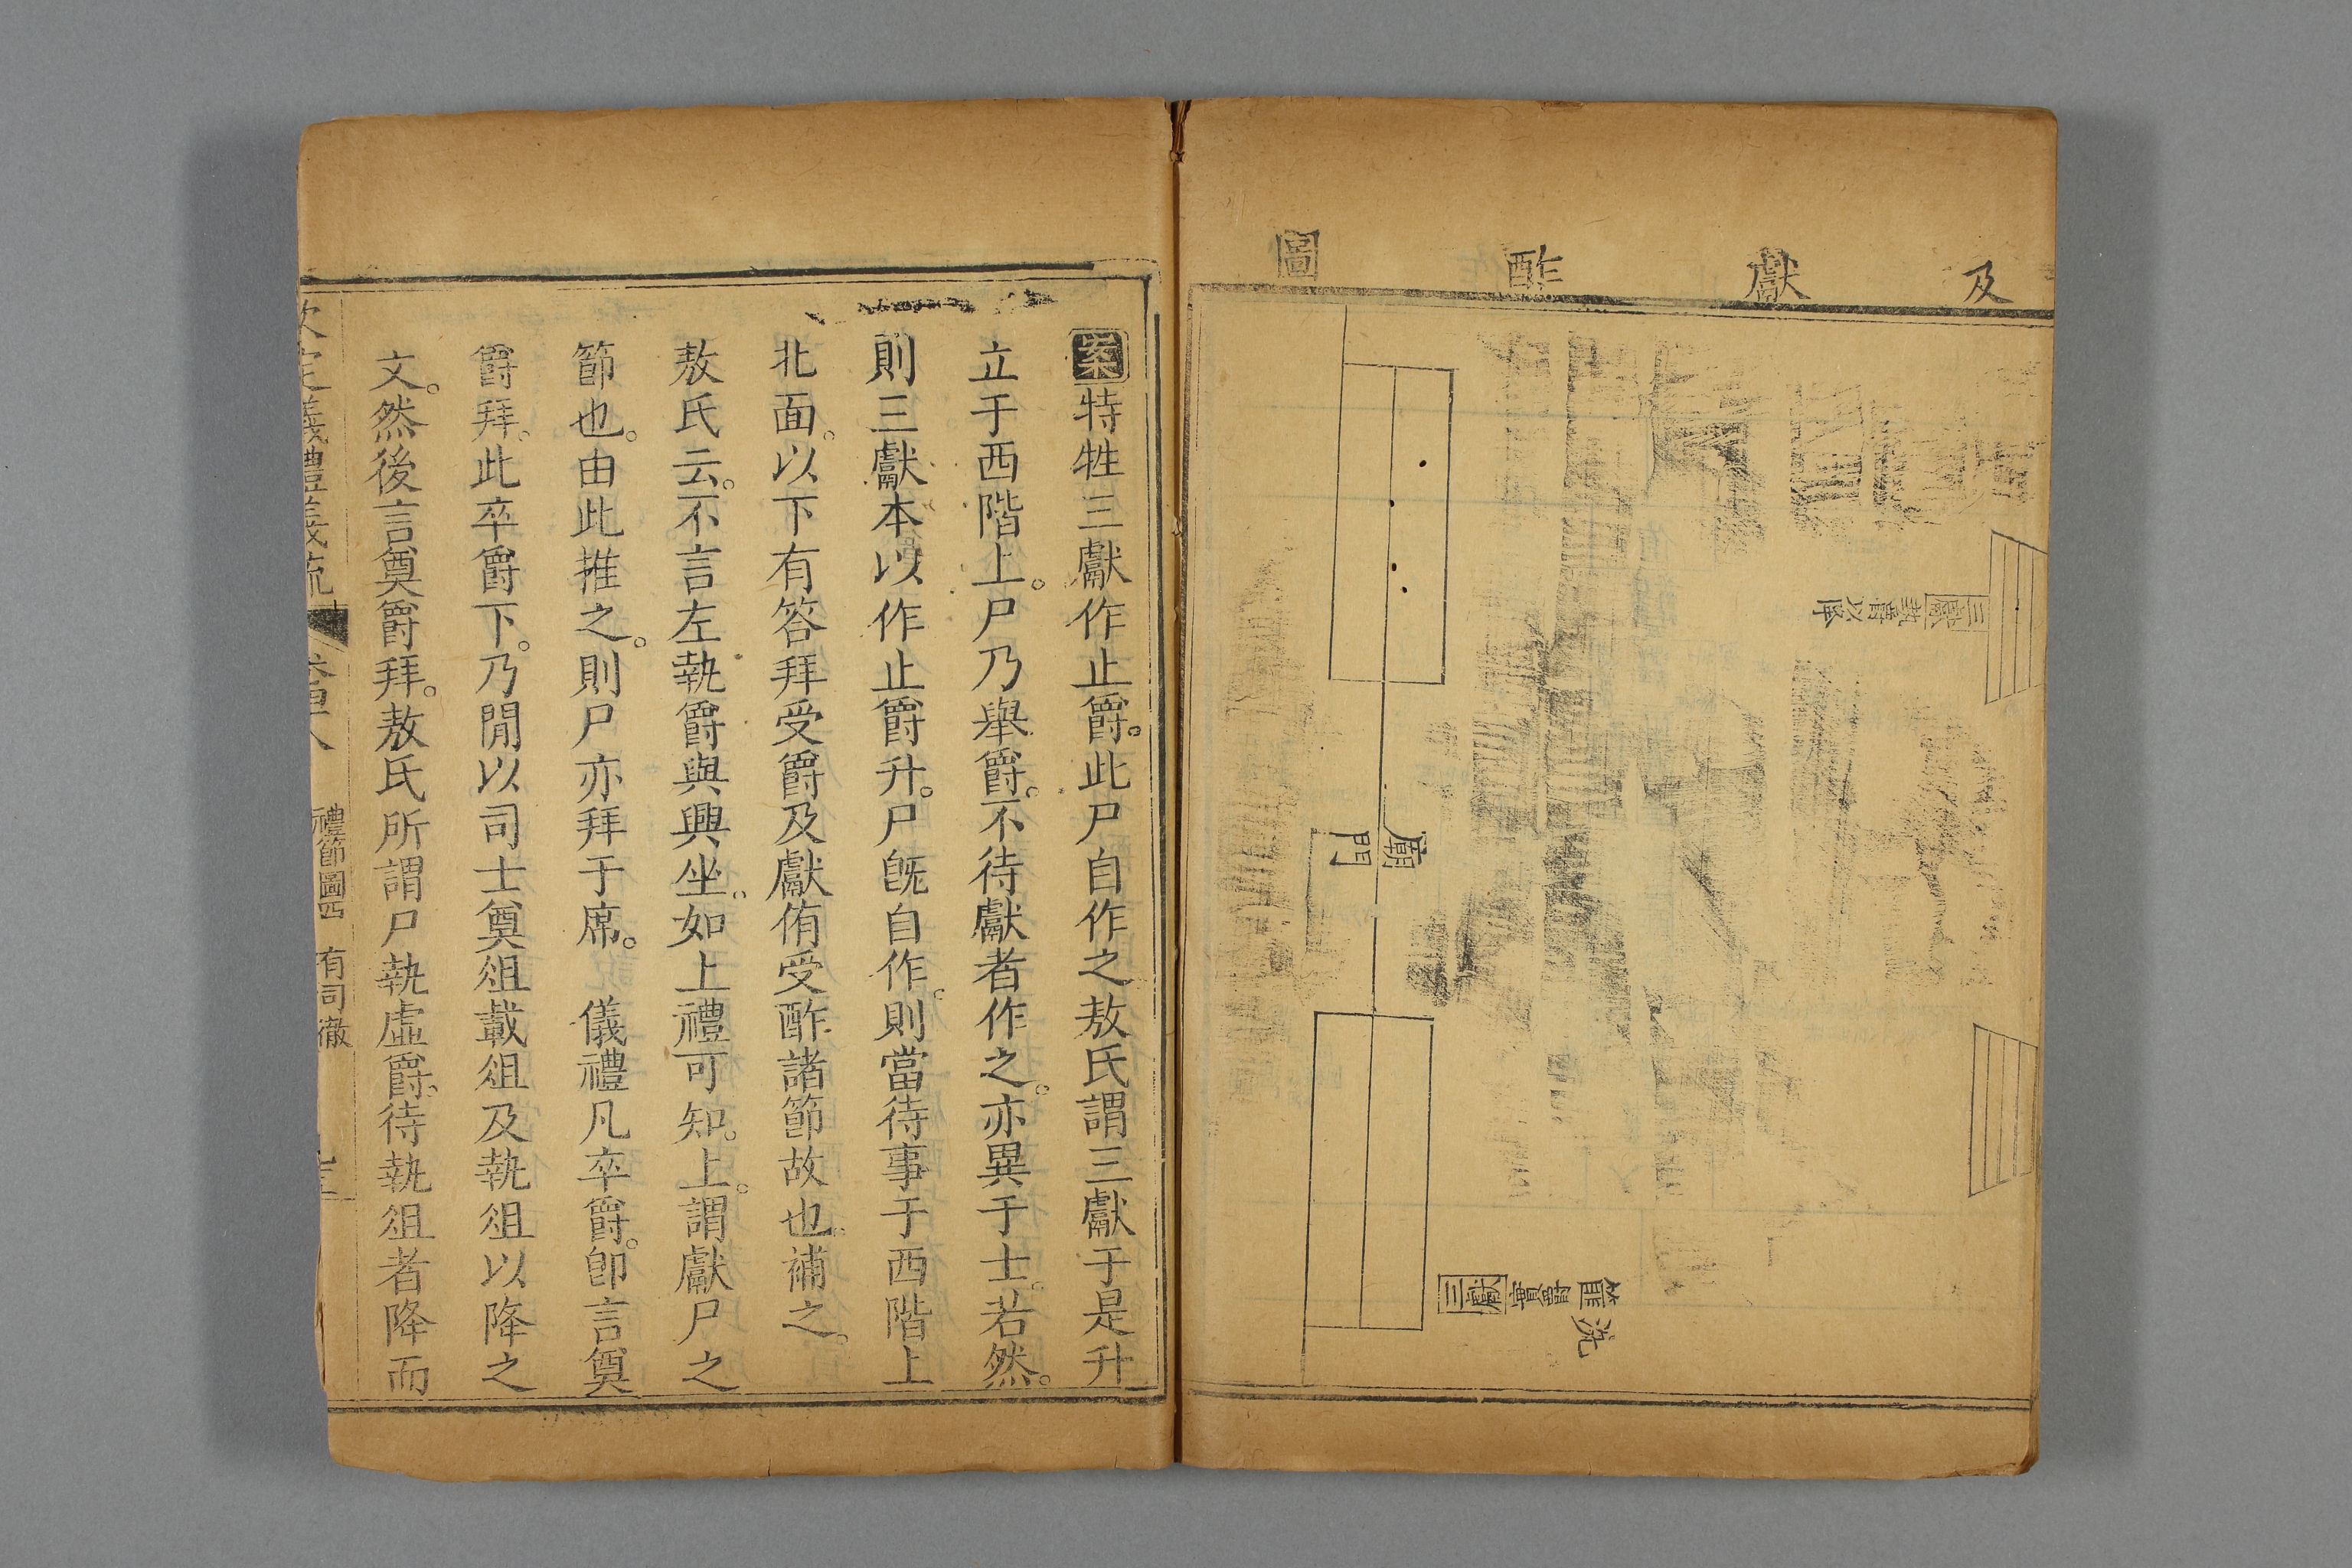 及獻酢圖
三獻執爵以降
廟門
三獻實爵
篚
洗
案特牲三獻作止爵。此尸自作之敖氏謂三獻于是升
立于西階上。尸乃舉爵。不待獻者作之。亦異于士。若然。
則三獻本以作止爵升。尸旣自作。則當待事于西階上
北面。以下有答拜受爵及獻侑受酢諸節故也補之。
敖氏云。不言左執爵與興坐。如上禮可知。上。謂獻尸之
節也。由此推之。則尸亦拜于席。　儀禮凡卒爵。卽言奠
爵拜。此卒爵下。乃閒以司士奠俎載俎及執俎以降之
文。然後言奠爵拜。敖氏所謂尸執虛爵。待執俎者降而
欽定義禮義疏
禮節圖四　有司徹